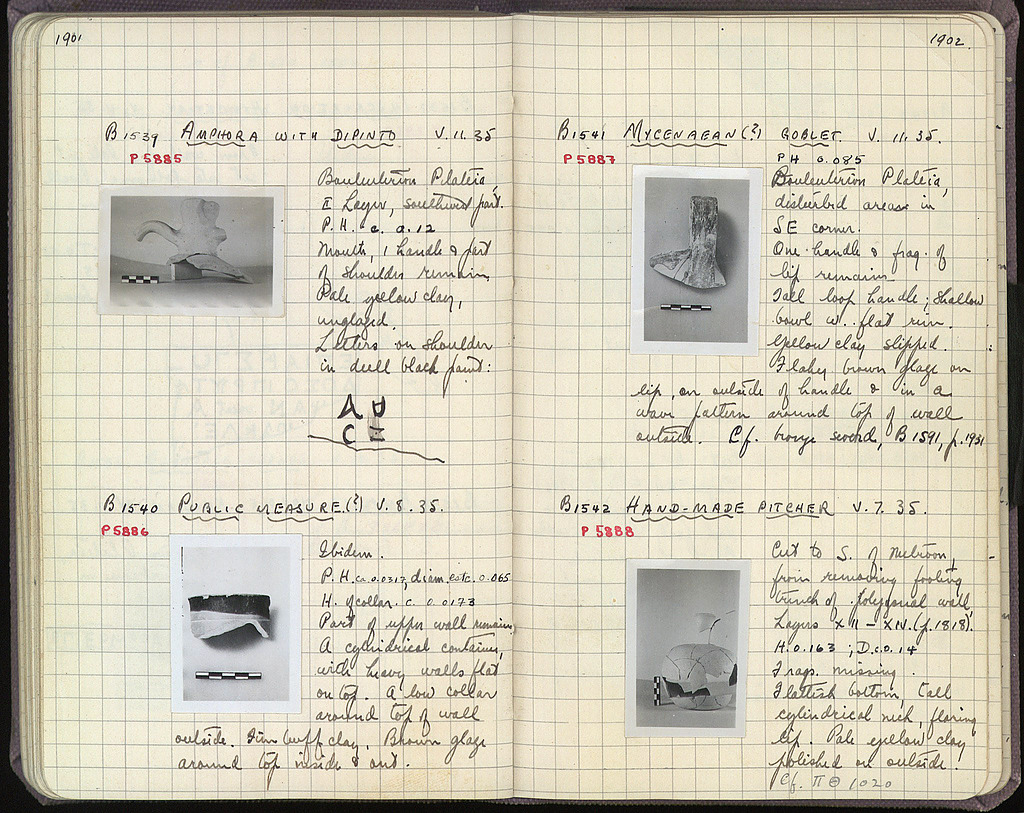 1901
B 1539 AMPHORA WITH DIPINTO V. 11. 35
P 5885
Bouleuterion Plateia,
II Layer, southwest part.
P. H. c. 0.12
Mouth, 1 handle & part
of shoulder remain.
Pale yellow clay,
unglazed.
Letters on shoulder
in dull black paint:
B 1540 PUBLIC MEASURE (?) V. 8. 35.
P 5886
Ibidem.
P. H. ca. 0.0317, diam. estc. 0.065
H. of collar. c. 0.0173
Part of upper wall remains.
A cylindrical container,
with heavy walls flat
on top. A low collar
around top of wall
outside. Firm buff clay. Brown glaze
around top inside & out.
1902
B 1541 MYCENAEAN (?) GOBLET. V. 11. 35.
P 5887
P H 0.085
Bouleuterion Plateia,
disturbed areas in
SE corner.
One handle & frag. of
lip remains
Tall loop handle; shallow
bowl w. flat rim.
Yellow clay slipped.
Flaky brown glaze on
lip, on outside of handle & in a
wave pattern around top of wall
outside. Cf. bronze sword, B 1591, p. 1951
B 1542 HAND-MADE PITCHER V. 7. 35.
P 5888
Cut to S. of Metroon,
from removing footing
trench of polygonal wall,
Layers XII – XIV. (p. 1818).
H. 0.163 ; D. c. 0.14
Frags. missing.
Flattish bottom, tall
cylindrical neck, flaring
lip. Pale yellow clay,
polished on outside.
Cf. Π Θ 1020